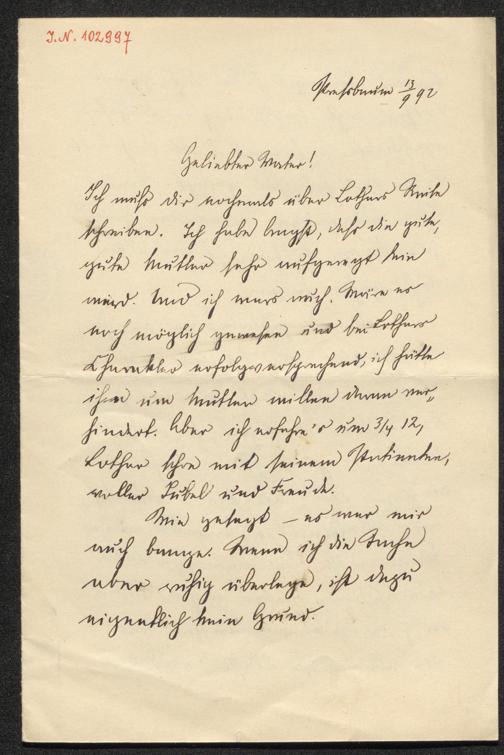 J.N. 102997
Pressbaum 13/9 92
Geliebter Vater!
Ich muß dir nochmals über Lothars Reise
schreiben. Ich habe Angst, daß die gute,
gute Mutter sehr aufgeregt sein
wird. Und ich wars auch. Wäre es
noch möglich gewesen und bei Lothars
Charakter erfolgversprechend, ich hätte
ihn um Mutters willen daran ver„
hindert. Aber ich erfahre's um 3/4 12,
Lothar schon mit seinem Patienten,
voller Jubel und Freude.
Wie gesagt – es war mir
auch bange. Wenn ich die Sache
aber ruhig überlege, ist dazu
eigentlich kein Grund.